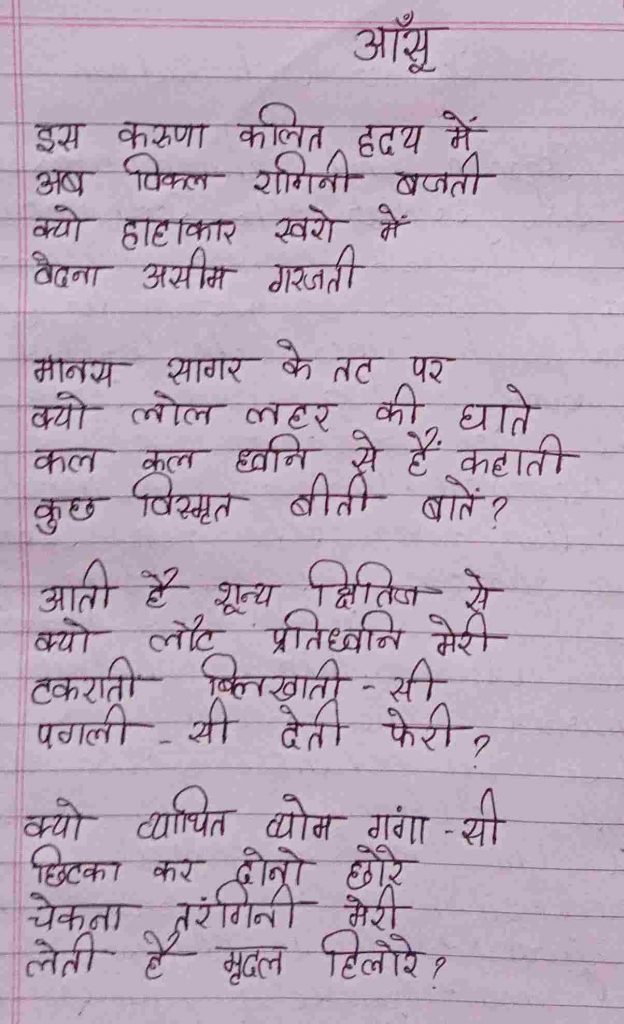 आँसू
इस करुणा कलित हृदय में
अब विकल रागिनी बजती
क्यो हाहाकार स्वरो में
वेदना असीम गरजती
मानस सागर के तट पर
क्यो लोल लहर की घाते
कल कल ध्वनि से हैं कहाती
कुछ विस्मृत बीती बातें?
आती है शून्य क्षितिज से
क्यो लौट प्रतिध्वनि मेरी
टकराती बिलखाती - सी
पगली - सी देती फेरी?
क्यो व्यथित व्योम गंगा - सी
छिटका कर दोनो छोरे
चेकना तरंगिनी मेरी
लेती है मृदल हिलोरे?